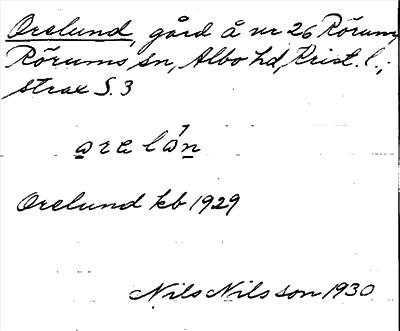 Orelund, gård å nr 26 Rörum,
Rörums sn, Albo hd, Krist. l.;
strax S. 3
arelón
Orelund kb 1929
Nils Nilsson 1930